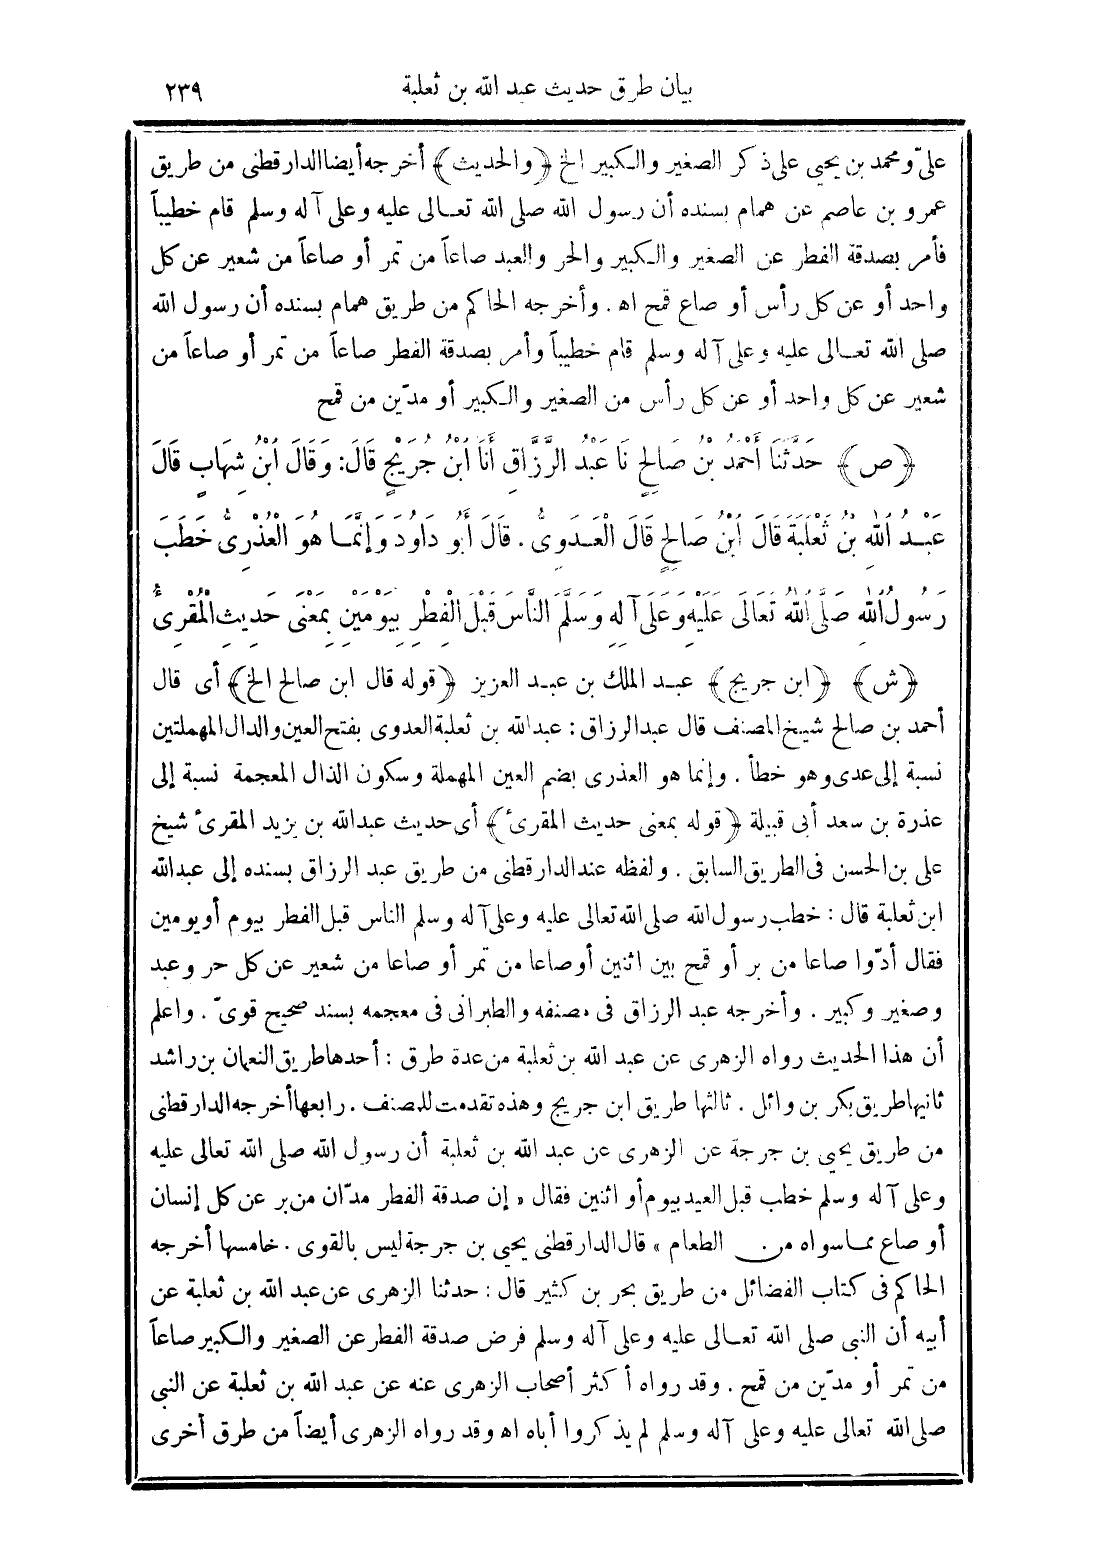 بيان طرق حديث عبد الله بن ثعلبة ٢٣٩
علىّ ومحمد بن يحيى على ذكر الصغير والكبير الخ ﴿والحديث﴾ أخرجه أيضا الدارقطنى من طريق
عمرو بن عاصم عن همام بسنده أن رسول الله صلى الله تعـالى عليه وعلى آله وسلم قام خطيباً
فأمر بصدقة الفطر عن الصغير والكبير والحر والعبد صاعاً من تمر أو صاعاً من شعير عن كل
واحد أو عن كل رأس أو صاع قمح اه . وأخرجه الحاكم من طريق همام بسنده أن رسول الله
صلى الله تعـالى عليه وعلى آله وسلم قام خطيباً وأمر بصدقة الفطر صاعاً من تمر أو صاعاً من
شعير عن كل واحد أو عن كل رأس من الصغير والكبير أو مدّين من قمح
﴿ص﴾ حَدَّثَنَا أَحْمَدُ بْنُ صَالِحٍ نَا عَبْدُ الرَّزَّاقِ أَنَا ابْنُ جُرَيْجٍ قَالَ: وَقَالَ ابْنُ شِهَابٍ قَالَ
عَبْـدُ اللهِ بْنُ ثَعْلَبَةَ قَالَ ابْنُ صَالِحٍ قَالَ الْعَـدَوِىُّ . قَالَ أَبُو دَاوُدَ وَإِنَّمَـا هُوَ الْعُذْرِىُّ خَطَبَ
رَسُولُ اللهِ صَلَّى اللهُ تَعَالَى عَلَيْهِ وَعَلَى آلِهِ وَسَلَّمَ النَّاسَ قَبْلَ الْفِطْرِ بِيَوْمَيْنِ بِمَعْنَى حَدِيثِ الْمُقْرِئُ
﴿ش﴾ ﴿ابن جريج﴾ عبـد الملك بن عبـد العزيز ﴿قوله قال ابن صالح الخ﴾ أى قال
أحمد بن صالح شيخ المصنف قال عبد الرزاق : عبد الله بن ثعلبة العدوى بفتح العين والدال المهملتين
نسبة إلى عدى وهو خطأ . وإنما هو العذرى بضم العين المهملة وسكون الذال المعجمة نسبة إلى
عذرة بن سعد أبى قبيلة ﴿قوله بمعنى حديث المقرئ﴾ أى حديث عبد الله بن يزيد المقرئ شيخ
على بن الحسن فى الطريق السابق . ولفظه عند الدارقطنى من طريق عبد الرزاق بسنده إلى عبد الله
ابن ثعلبة قال : خطب رسول الله صلى الله تعالى عليه وعلى آله وسلم الناس قبل الفطر بيوم أو يومين
فقال أدّوا صاعا من بر أو قمح بين اثنين أو صاعا من تمر أو صاعا من شعير عن كل حر وعبد
وصغير وكبير . وأخرجه عبد الرزاق فى مصنفه والطبرانى فى معجمه بسند صحيح قوىّ . واعلم
أن هذا الحديث رواه الزهرى عن عبد الله بن ثعلبة من عدة طرق : أحدها طريق النعمان بن راشد
ثانيها طريق بكر بن وائل . ثالثها طريق ابن جريج وهذه تقدمت للمصنف . رابعها أخرجه الدارقطنى
من طريق يحيى بن جرجة عن الزهرى عن عبد الله بن ثعلبة أن رسول الله صلى الله تعالى عليه
وعلى آله وسلم خطب قبل العيد بيوم أو اثنين فقال « إن صدقة الفطر مدّان من بر عن كل إنسان
أو صاع مما سواه من الطعام » قال الدارقطنى يحيى بن جرجة ليس بالقوى . خامسها أخرجه
الحاكم فى كتاب الفضائل من طريق بحر بن كثير قال : حدثنا الزهرى عن عبد الله بن ثعلبة عن
أبيه أن النبى صلى الله تعـالى عليه وعلى آله وسلم فرض صدقة الفطر عن الصغير والكبير صاعاً
من تمر أو مدّين من قمح . وقد رواه أكثر أصحاب الزهرى عنه عن عبد الله بن ثعلبة عن النبى
صلى الله تعالى عليه وعلى آله وسلم لم يذكروا أباه اه وقد رواه الزهرى أيضاً من طرق أخرى